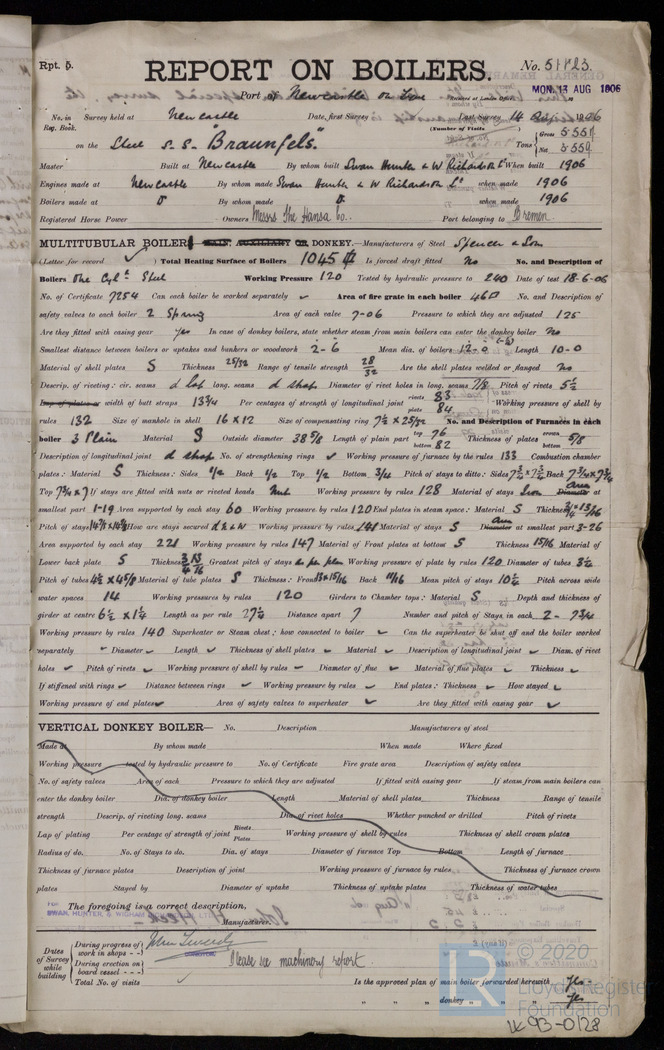 Rpt. 5.
REPORT ON BOILERS.
No. 51123.
Port of Newcastle on Tyne
Received at London Office
MON. 13 AUG 1906
No. in Reg. Book. Survey held at Newcastle Date, first Survey Last Survey 14 1906
(Number of Visits
on the Steel S.S. "Braunfels." Tons Gross Net
Master Built at Newcastle By whom built Swan Hunter & W Richardson Ld When built 1906
Engines made at Newcastle By whom made Swan Hunter & W Richardson Ld when made 1906
Boilers made at Do By whom made Do when made 1906
Registered Horse Power Owners Messrs The Hansa Co. Port belonging to Bremen
MULTITUBULAR BOILERS MAIN, AUXILIARY OR DONKEY.—Manufacturers of Steel Spencer & Son
(Letter for record ✓ ) Total Heating Surface of Boilers 1045 Is forced draft fitted No No. and Description of
Boilers One Cyl. Steel Working Pressure 120 Tested by hydraulic pressure to 240 Date of test 18-6-06
No. of Certificate 7254 Can each boiler be worked separately ✓ Area of fire grate in each boiler 46□ No. and Description of
safety valves to each boiler 2 Spring Area of each valve 7-06 Pressure to which they are adjusted 125
Are they fitted with easing gear Yes In case of donkey boilers, state whether steam from main boilers can enter the donkey boiler No
Smallest distance between boilers or uptakes and bunkers or woodwork 2-6 Mean dia. of boilers 12-0 Length 10-0
Material of shell plates S Thickness 25/32 Range of tensile strength 28/32 Are the shell plates welded or flanged no
Descrip. of riveting: cir. seams d lap long. seams d strap Diameter of rivet holes in long. seams 7/8 Pitch of rivets 5½
Lap of plates or width of butt straps 13¾ Per centages of strength of longitudinal joint rivets 83 plate 84 Working pressure of shell by
rules 132 Size of manhole in shell 16 x 12 Size of compensating ring 7½ x 25/32 No. and Description of Furnaces in each
boiler 3 Plain Material S Outside diameter 38⅞ Length of plain part top 76 bottom 82 Thickness of plates crown bottom 5/8
Description of longitudinal joint d strap No. of strengthening rings ✓ Working pressure of furnace by the rules 133 Combustion chamber
plates: Material S Thickness: Sides ½ Back ½ Top ½ Bottom ¾ Pitch of stays to ditto: Sides 7¾ x 7¾ Back 7¾ x 7¾
Top 7¾ x 7 If stays are fitted with nuts or riveted heads Nuts Working pressure by rules 128 Material of stays Iron Diameter Area at
smallest part 1-19 Area supported by each stay 60 Working pressure by rules 120 End plates in steam space: Material S Thickness 13/16
Pitch of stays How are stays secured d n & w Working pressure by rules 141 Material of stays S Diameter Area at smallest part 3-26
Area supported by each stay 221 Working pressure by rules 147 Material of Front plates at bottom S Thickness 15/16 Material of
Lower back plate S Thickness ¾ 13/16 Greatest pitch of stays as per plan Working pressure of plate by rules 120 Diameter of tubes 3½
Pitch of tubes 4½ x 4⅝ Material of tube plates S Thickness: Front 13/16 x 15/16 Back 11/16 Mean pitch of stays 10¼ Pitch across wide
water spaces 14 Working pressures by rules 120 Girders to Chamber tops: Material S Depth and thickness of
girder at centre 6½ x 1¼ Length as per rule 27¼ Distance apart 7 Number and pitch of Stays in each 2 - 7¾
Working pressure by rules 140 Superheater or Steam chest: how connected to boiler ✓ Can the superheater be shut off and the boiler worked
separately ✓ Diameter ✓ Length ✓ Thickness of shell plates ✓ Material ✓ Description of longitudinal joint ✓ Diam. of rivet
holes ✓ Pitch of rivets ✓ Working pressure of shell by rules ✓ Diameter of flue ✓ Material of flue plates ✓ Thickness ✓
If stiffened with rings ✓ Distance between rings ✓ Working pressure by rules ✓ End plates: Thickness ✓ How stayed ✓
Working pressure of end plates ✓ Area of safety valves to superheater ✓ Are they fitted with easing gear ✓
VERTICAL DONKEY BOILER— No. Description Manufacturers of steel
Made at By whom made When made Where fixed
Working pressure tested by hydraulic pressure to No. of Certificate Fire grate area Description of safety valves
No. of safety valves Area of each Pressure to which they are adjusted If fitted with easing gear If steam from main boilers can
enter the donkey boiler Dia. of donkey boiler Length Material of shell plates Thickness Range of tensile
strength Descrip. of riveting long. seams Dia. of rivet holes Whether punched or drilled Pitch of rivets
Lap of plating Per centage of strength of joint Rivets Plates Working pressure of shell by rules Thickness of shell crown plates
Radius of do. No. of Stays to do. Dia. of stays Diameter of furnace Top Bottom Length of furnace
Thickness of furnace plates Description of joint Working pressure of furnace by rules Thickness of furnace crown
plates Stayed by Diameter of uptake Thickness of uptake plates Thickness of water tubes
The foregoing is a correct description,
FOR SWAN, HUNTER & WIGHAM RICHARDSON LTD
Manufacturer.
DIRECTOR
Dates of Survey while building
During progress of work in shops - -
During erection on board vessel - - -
Total No. of visits
Please see machinery report.
Is the approved plan of main boiler forwarded herewith Yes
" " " donkey " " " Yes
© 2020
Lloyd's Register
Foundation
W93-0128